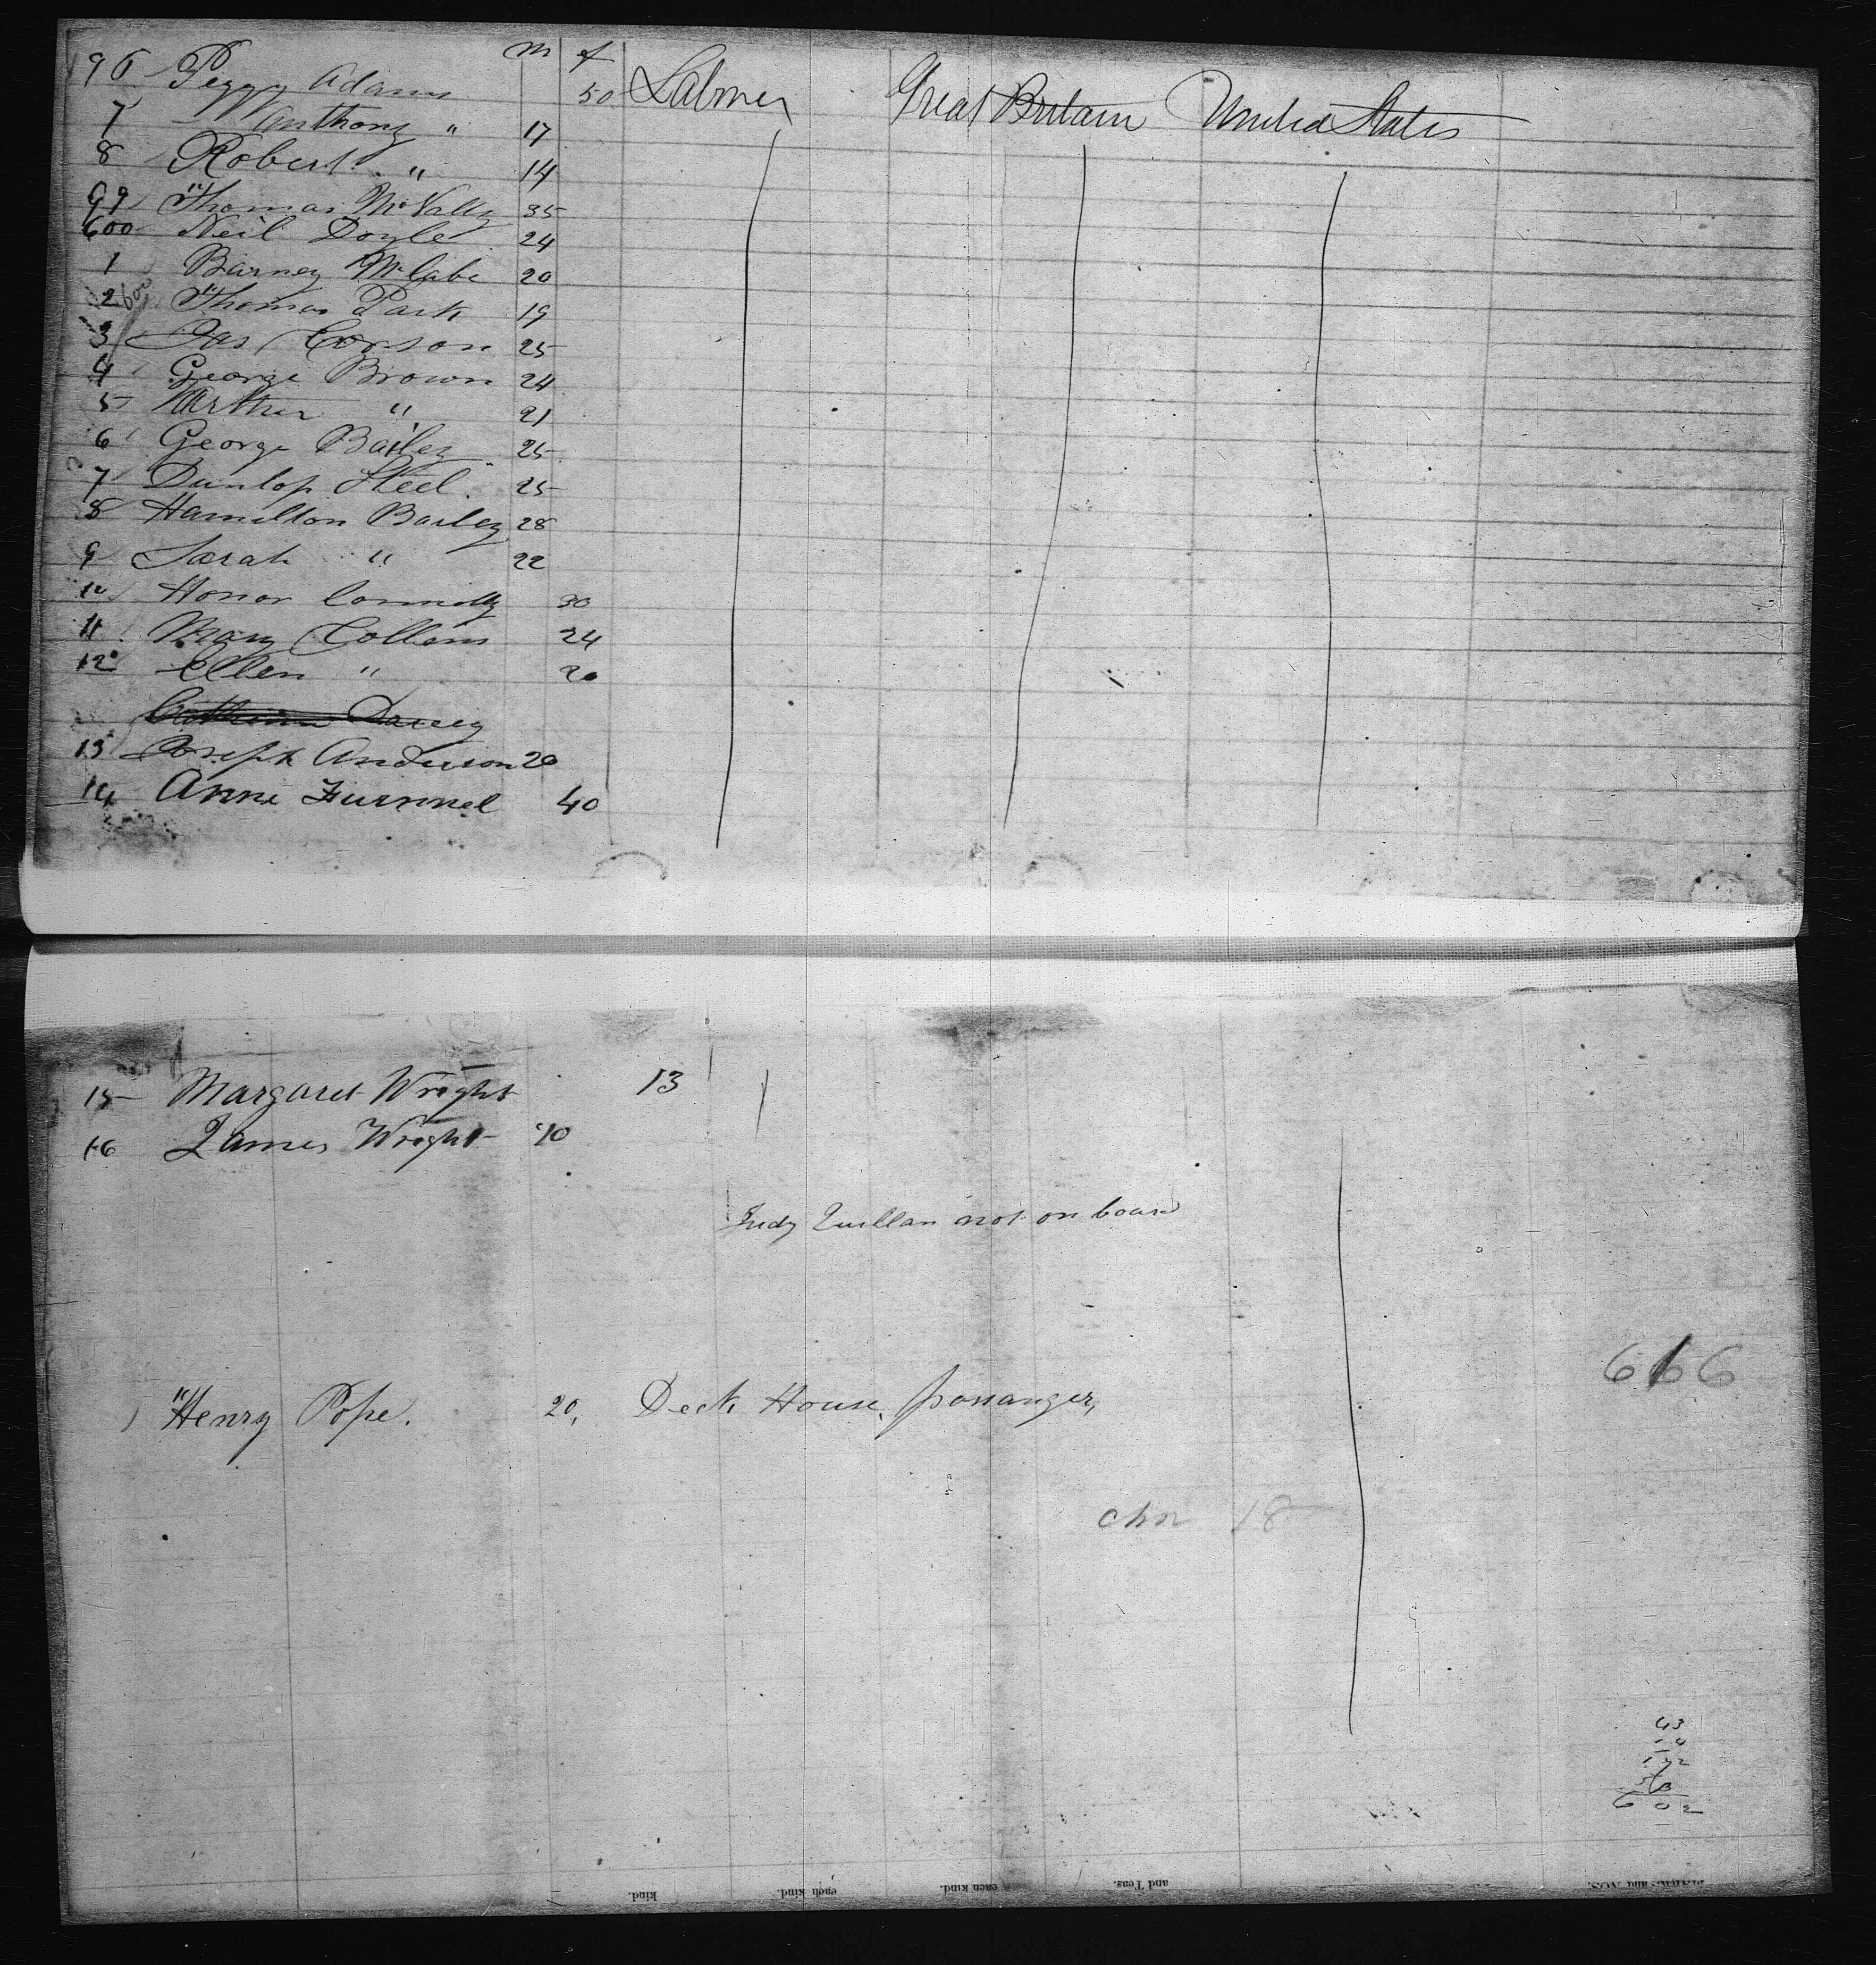 m f
96 Peggy Adams 50 Labourer Great Britain United States
7 Anthony " 17
8 Robert " 14
99 Thomas McNally 35
600 Neil Doyle 24
1 Barney McCabe 20
2 Thomas Park 19
3 Jas Corson 25
4 George Brown 24
5 Arthur " 21
6 George Bailey 25
7 Dunlop Steel 25
8 Hamilton Bailey 28
9 Sarah " 22
10 Honor Connolly 30
11 Mary Collens 24
12 Ellen " 20
13 Joseph Anderson 20
14 Anne 40
15 Margaret Wright 13
16 James Wright 10
Judy Quillan not on board
616
Henry Pope. 20, Deck House, passanger,
chn 18
43
602
kind. each kind. each kind. and Tens. MARKS and NOS.